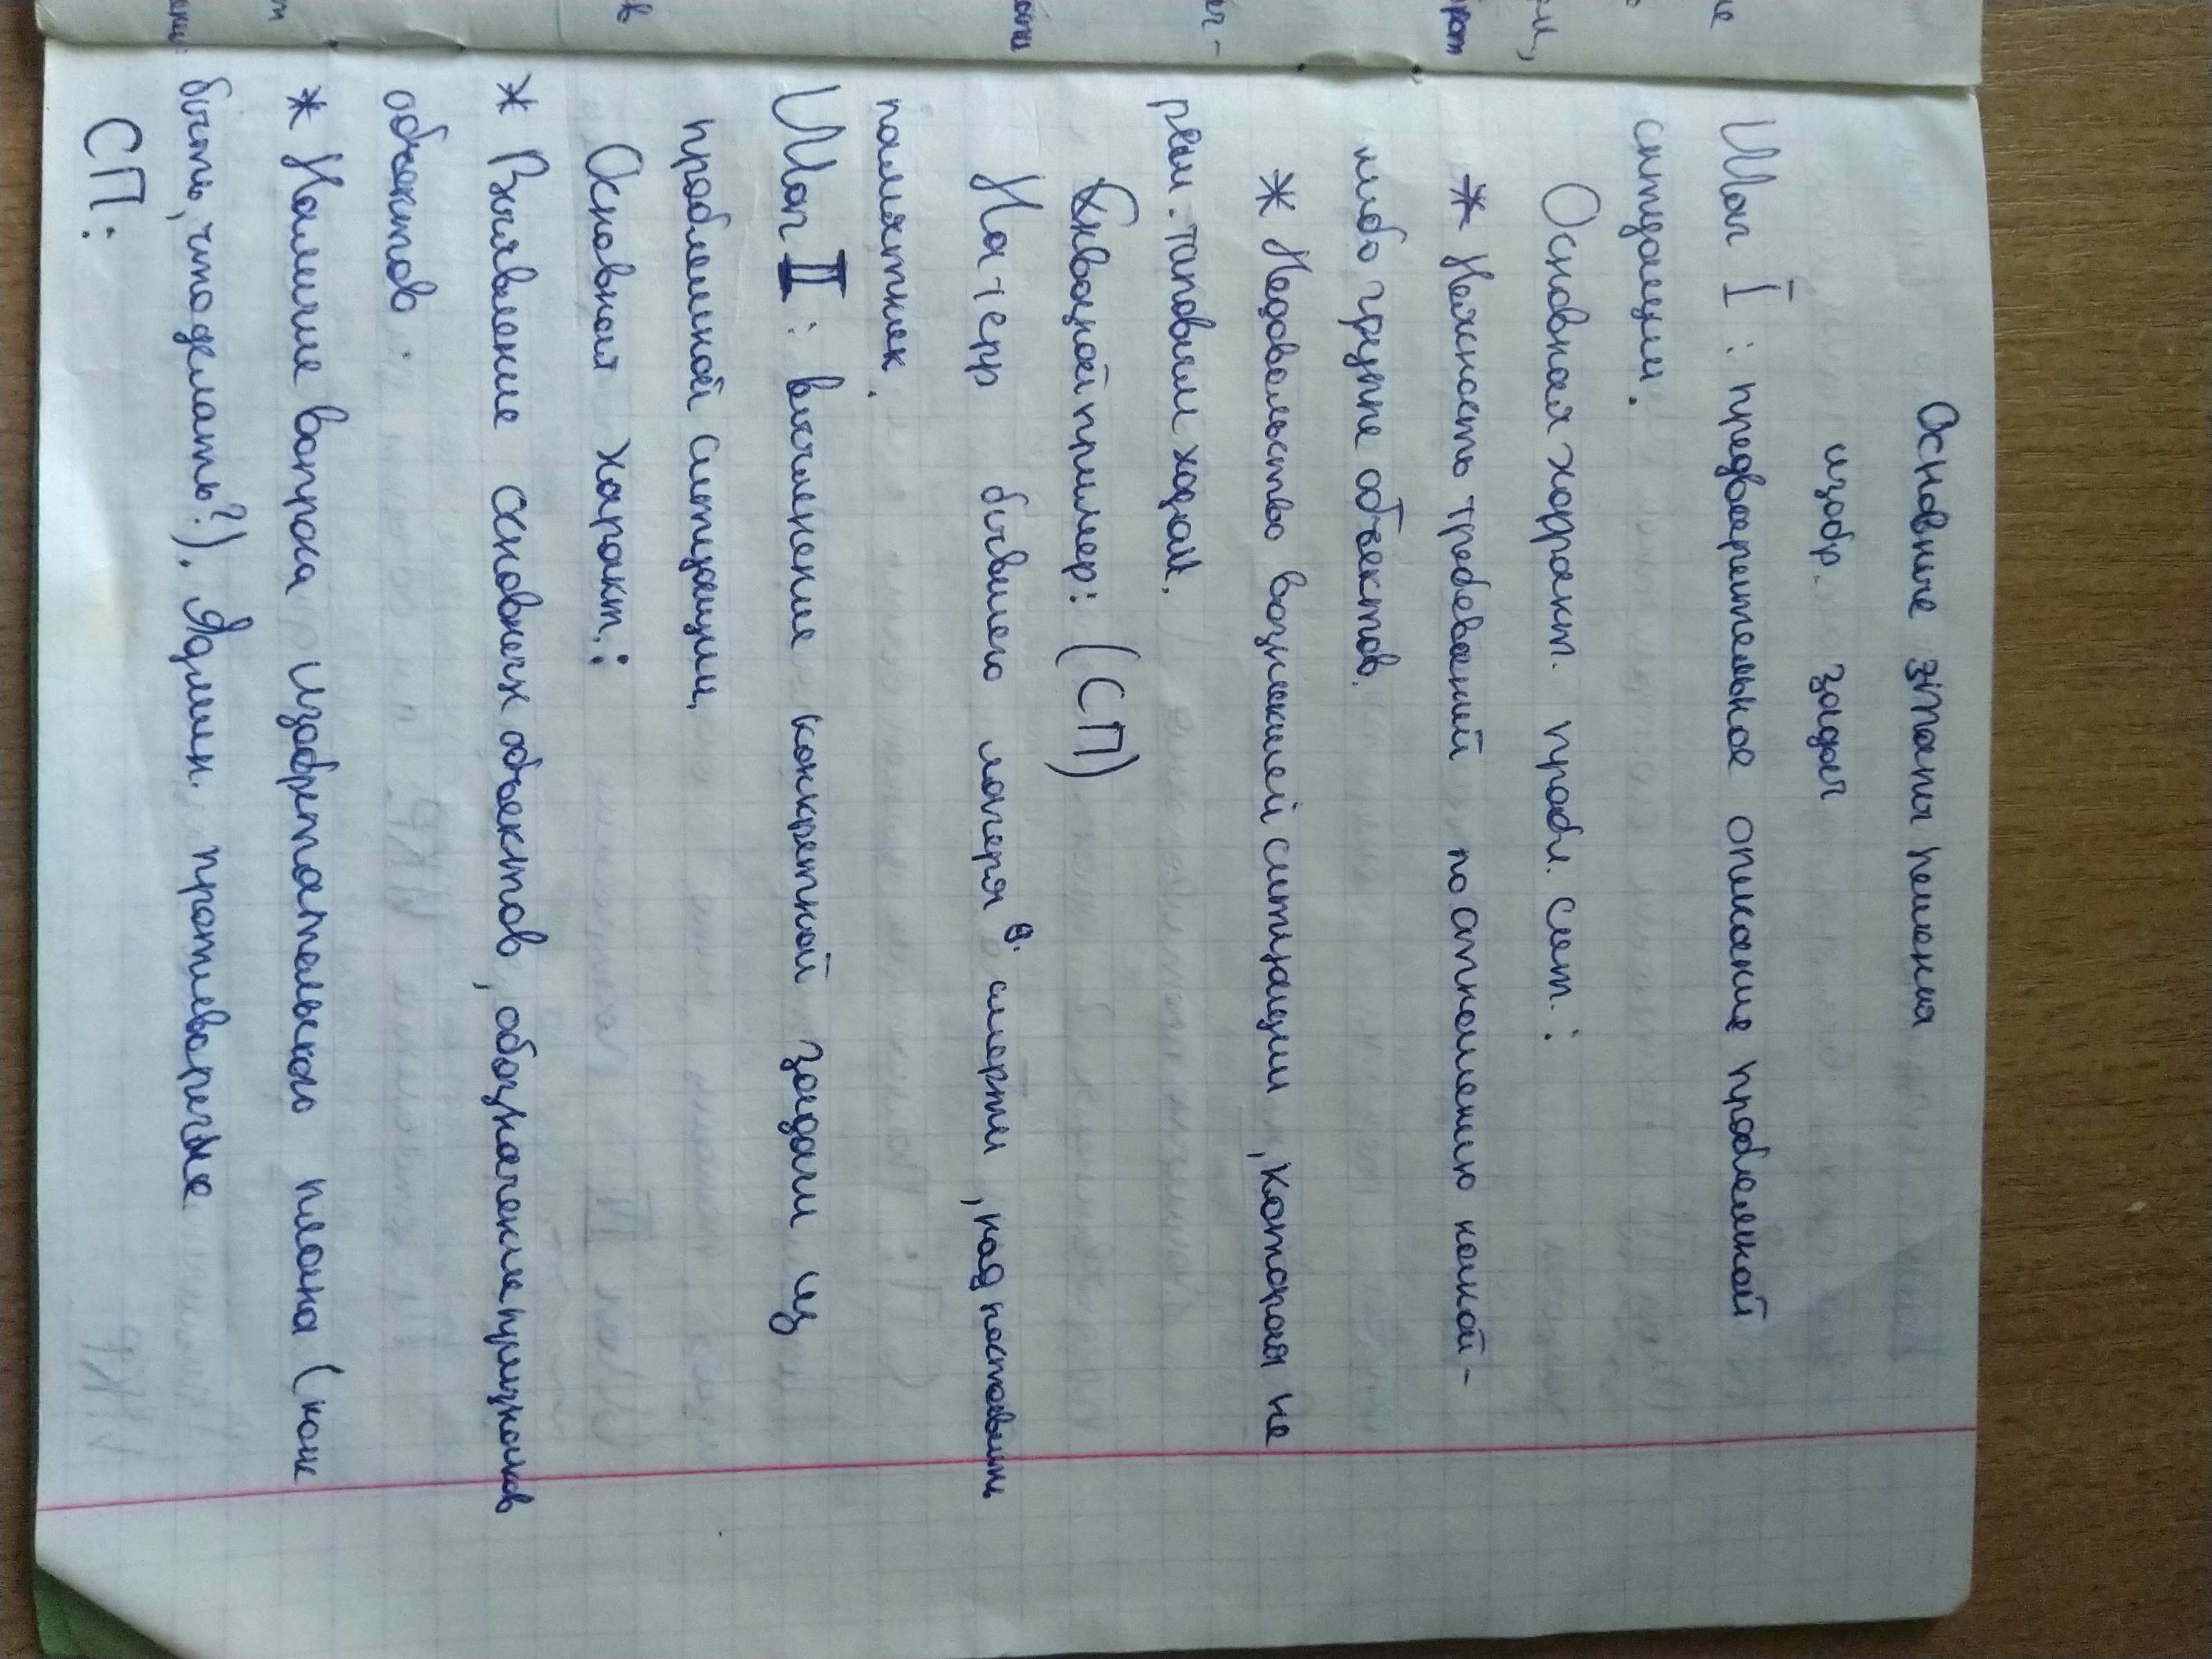 Основные этапы решения
изобр. задач
Шаг I : предварительное описание проблемной
ситуации.
Основная харракт. пробл. сит.:
* Неясность требований по отношению какой-
либо группе объектов.
* Недовольство возникшей ситуации, которая не
реш. таповым ходом.
Сквозной пример: (СП)
На терр бывшего лагеря смерти, над поставить
памятник.
Шаг II : вычленение конкретной задачи из
проблемной ситуации,
Основная характ.:
* Выявление основных объектов, обозначение признаков
объектов
* Наличие вопрса изобретательского плана (как
быть, что делать?). Админ. противоречие
СП: